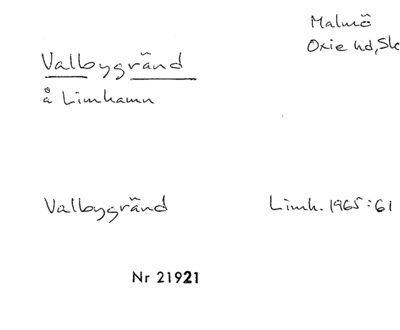 Malmö
Oxie hd, Sk
Valbygränd
å Limhamn
Valbygränd Limh. 1965:61
Nr 21921